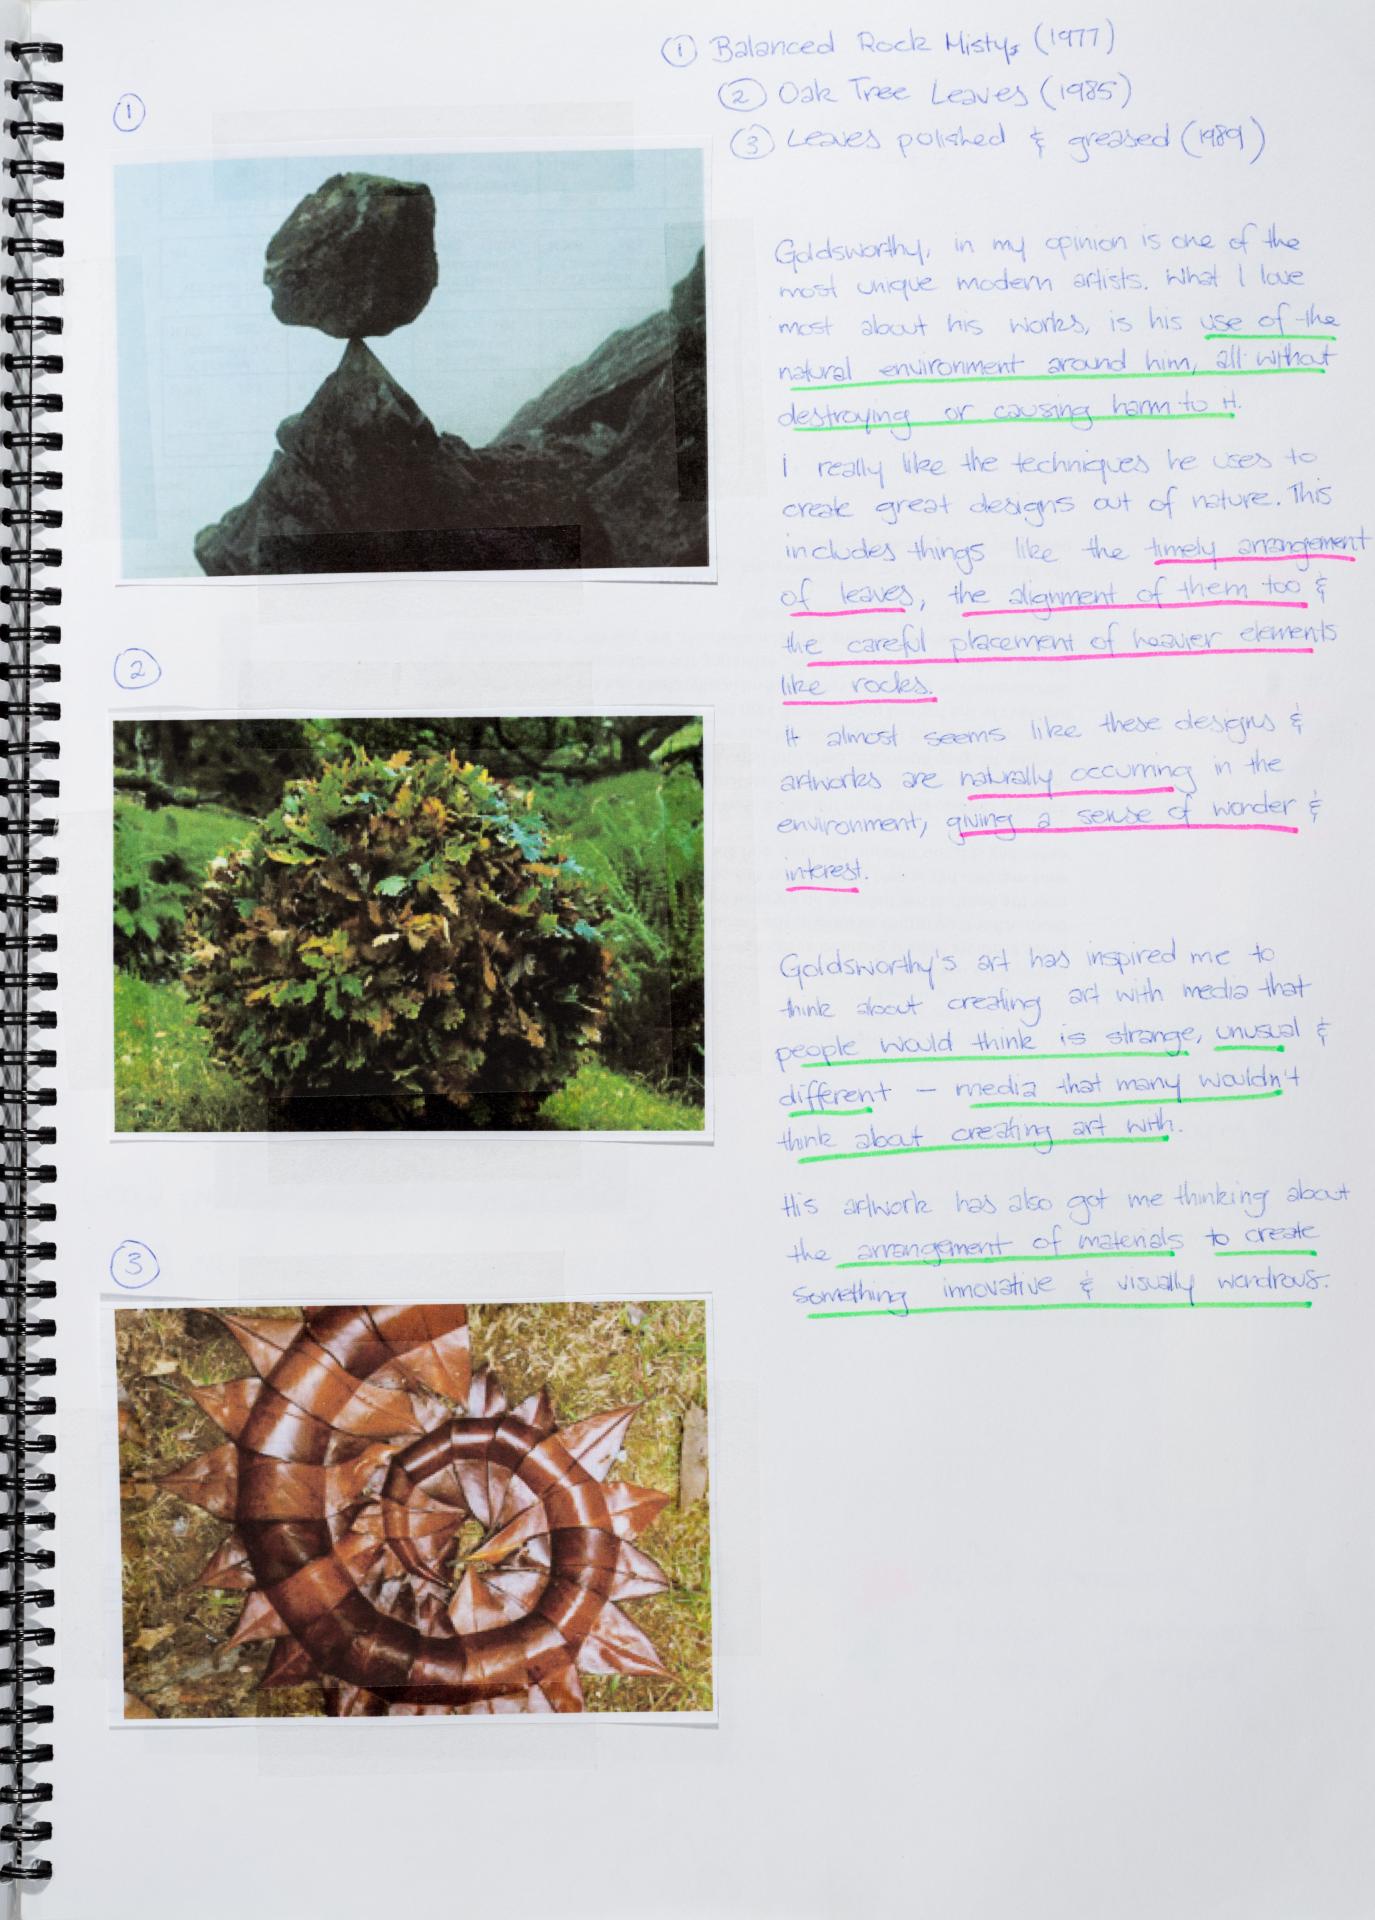 ① Balanced Rock Misty, (1977)
② Oak Tree Leaves (1985)
③ Leaves polished & greased (1989)
①
②
③
Goldsworthy, in my opinion is one of the
most unique modern artists. What I love
most about his works, is his use of the
natural environment around him, all without
destroying or causing harm to it.
I really like the techniques he uses to
create great designs out of nature. This
includes things like the timely arrangement
of leaves, the alignment of them too &
the careful placement of heavier elements
like rocks.
It almost seems like these designs &
artworks are naturally occurring in the
environment, giving a sense of wonder &
interest.
Goldsworthy's art has inspired me to
think about creating art with media that
people would think is strange, unusual &
different – media that many wouldn't
think about creating art with.
His artwork has also got me thinking about
the arrangement of materials to create
something innovative & visually wondrous.